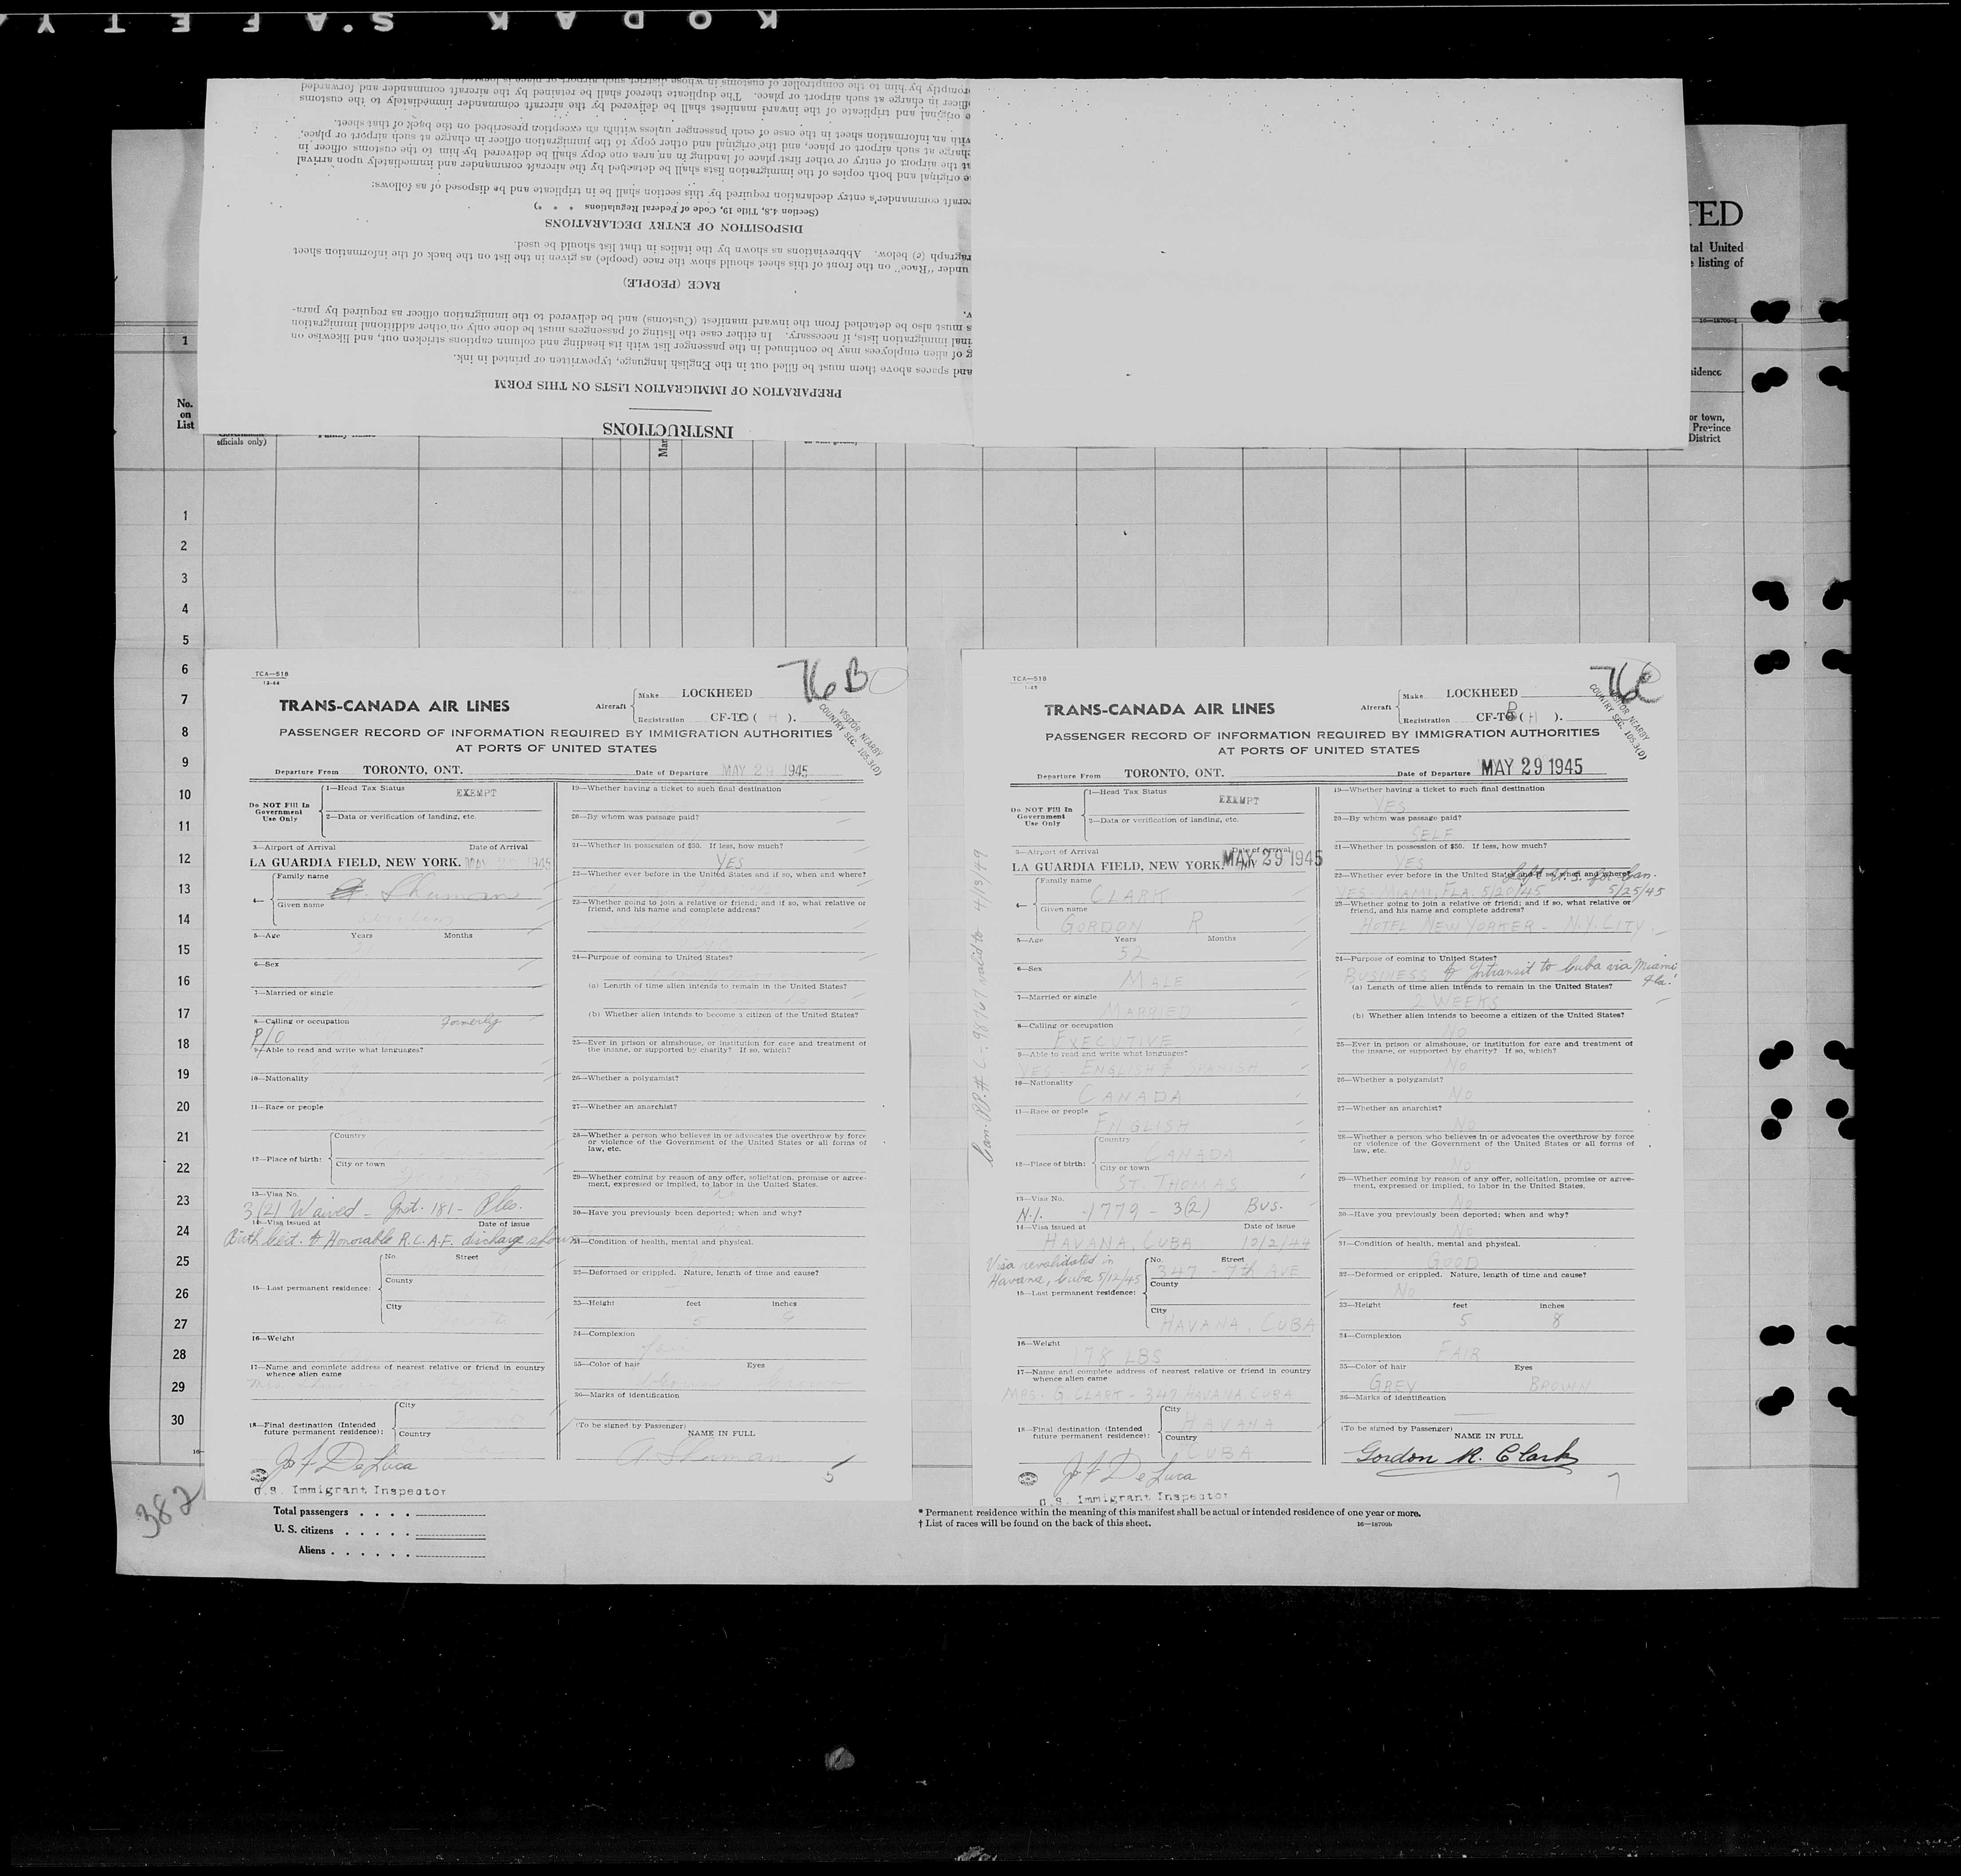 KODAK SAFETY
INSTRUCTIONS
PREPARATION OF IMMIGRATION LISTS ON THIS FORM
and spaces above them must be filled out in the English language, typewritten or printed in ink.
g of alien employees may be continued in the passenger list with its heading and column captions stricken out, and likewise on
inal immigration lists, if necessary. In either case the listing of passengers must be done only on other additional immigration
s must also be detached from the inward manifest (Customs) and be delivered to the immigration officer as required by para-
RACE (PEOPLE)
under "Race" on the front of this sheet should show the race (people) as given in the list on the back of the information sheet
ragraph (e) below. Abbreviations as shown by the italics in that list should be used.
DISPOSITION OF ENTRY DECLARATIONS
(Section 4.8, Title 19, Code of Federal Regulations * * *)
rcraft commander's entry declaration required by this section shall be in triplicate and be disposed of as follows:
e original and both copies of the immigration lists shall be detached by the aircraft commander and immediately upon arrival
at the airport of entry or other first place of landing in an area one copy shall be delivered by him to the customs officer in
charge at such airport or place, and the original and other copy to the immigration officer in charge at such airport or place,
with an information sheet in the case of each passenger unless within an exception prescribed on the back of that sheet.
e original and triplicate of the inward manifest shall be delivered by the aircraft commander immediately to the customs
officer in charge at such airport or place. The duplicate thereof shall be retained by the aircraft commander and forwarded
promptly by him to the comptroller of customs in whose district such airport or place is located
TED
tal United
listing of
16—18700-1
sidence
or town,
Province
District
1
No.
on
List
officials only)
1
2
3
4
5
6
7
8
9
10
11
12
13
14
15
16
17
18
19
20
21
22
23
24
25
26
27
28
29
30
TCA—518
12-44
76 B
TRANS-CANADA AIR LINES
Aircraft Make LOCKHEED
Registration CF-TC ( H ).
VISITOR NEARBY
COUNTRY SEC. 105.3(D)
PASSENGER RECORD OF INFORMATION REQUIRED BY IMMIGRATION AUTHORITIES
AT PORTS OF UNITED STATES
Departure From TORONTO, ONT. Date of Departure MAY 29 1945
Do NOT Fill In
Government
Use Only
1—Head Tax Status EXEMPT
2—Data or verification of landing, etc.
3—Airport of Arrival Date of Arrival
LA GUARDIA FIELD, NEW YORK. MAY 1945
4— Family name Shuman
Given name
5—Age Years Months
6—Sex
7—Married or single
8—Calling or occupation Formerly
P/O
9—Able to read and write what languages?
10—Nationality
11—Race or people
12—Place of birth: Country
City or town
13—Visa No.
3(2) Waived - Inst. 181 - Ples.
14—Visa issued at Date of issue
Birth Cert. & Honorable R.C.A.F. discharge shown
15—Last permanent residence: No. Street
County
City
16—Weight
17—Name and complete address of nearest relative or friend in country
whence alien came
18—Final destination (Intended
future permanent residence): City
Country
Jos F De Luca
U.S. Immigrant Inspector
19—Whether having a ticket to such final destination
20—By whom was passage paid?
21—Whether in possession of $50. If less, how much?
YES
22—Whether ever before in the United States and if so, when and where?
23—Whether going to join a relative or friend; and if so, what relative or
friend, and his name and complete address?
24—Purpose of coming to United States?
(a) Length of time alien intends to remain in the United States?
(b) Whether alien intends to become a citizen of the United States?
25—Ever in prison or almshouse, or institution for care and treatment of
the insane, or supported by charity? If so, which?
26—Whether a polygamist?
27—Whether an anarchist?
28—Whether a person who believes in or advocates the overthrow by force
or violence of the Government of the United States or all forms of
law, etc.
29—Whether coming by reason of any offer, solicitation, promise or agree-
ment, expressed or implied, to labor in the United States.
30—Have you previously been deported; when and why?
31—Condition of health, mental and physical.
32—Deformed or crippled. Nature, length of time and cause?
33—Height feet inches
5 9
34—Complexion
35—Color of hair Eyes
36—Marks of identification
(To be signed by Passenger)
NAME IN FULL
A. Shuman
5
TCA—518
1-45
76C
TRANS-CANADA AIR LINES
Aircraft Make LOCKHEED
Registration CF-T ( H ).
VISITOR NEARBY
COUNTRY SEC. 105.3(D)
PASSENGER RECORD OF INFORMATION REQUIRED BY IMMIGRATION AUTHORITIES
AT PORTS OF UNITED STATES
Departure From TORONTO, ONT. Date of Departure MAY 29 1945
Do NOT Fill In
Government
Use Only
1—Head Tax Status EXEMPT
2—Data or verification of landing, etc.
3—Airport of Arrival Date of Arrival
LA GUARDIA FIELD, NEW YORK. MAY 29 1945
4— Family name CLARK
Given name GORDON R
5—Age Years Months
52
6—Sex
MALE
7—Married or single
MARRIED
8—Calling or occupation
EXECUTIVE
9—Able to read and write what languages?
YES - ENGLISH & SPANISH
10—Nationality
CANADA
11—Race or people
ENGLISH
12—Place of birth: Country CANADA
City or town
ST. THOMAS
13—Visa No.
N.I. 1779 - 3(2) BUS.
14—Visa issued at Date of issue
HAVANA, CUBA 10/2/44
Visa revalidated in
Havana, Cuba 5/12/45
15—Last permanent residence: No. Street
347 - 7th AVE
County
City
HAVANA, CUBA
16—Weight
178 LBS
17—Name and complete address of nearest relative or friend in country
whence alien came
MRS. G. CLARK - 347 HAVANA, CUBA
18—Final destination (Intended
future permanent residence): City
HAVANA
Country
CUBA
Jos F De Luca
U.S. Immigrant Inspector
Can. PP. # C-98767 valid to 4/13/49
19—Whether having a ticket to such final destination
YES
20—By whom was passage paid?
SELF
21—Whether in possession of $50. If less, how much?
YES
Left U.S. for Can.
22—Whether ever before in the United States and if so, when and where?
YES - MIAMI, FLA. 5/20/45 5/25/45
23—Whether going to join a relative or friend; and if so, what relative or
friend, and his name and complete address?
HOTEL NEW YORKER - N.Y. CITY
24—Purpose of coming to United States?
BUSINESS & Intransit to Cuba via Miami Fla.
(a) Length of time alien intends to remain in the United States?
2 WEEKS
(b) Whether alien intends to become a citizen of the United States?
No
25—Ever in prison or almshouse, or institution for care and treatment of
the insane, or supported by charity? If so, which?
No
26—Whether a polygamist?
No
27—Whether an anarchist?
No
28—Whether a person who believes in or advocates the overthrow by force
or violence of the Government of the United States or all forms of
law, etc.
No
29—Whether coming by reason of any offer, solicitation, promise or agree-
ment, expressed or implied, to labor in the United States.
No
30—Have you previously been deported; when and why?
No
31—Condition of health, mental and physical.
GOOD
32—Deformed or crippled. Nature, length of time and cause?
No
33—Height feet inches
5 8
34—Complexion
FAIR
35—Color of hair Eyes
GREY BROWN
36—Marks of identification
(To be signed by Passenger)
NAME IN FULL
Gordon R. Clark
7
382
Total passengers . . . .
U. S. citizens . . . . .
Aliens . . . . . .
* Permanent residence within the meaning of this manifest shall be actual or intended residence of one year or more.
† List of races will be found on the back of this sheet.
16—18700b